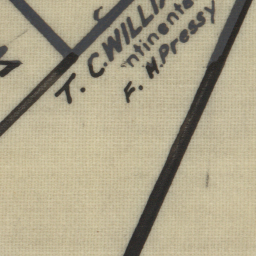 T. C. WILLIA
ntinenta
F. H. Pressy